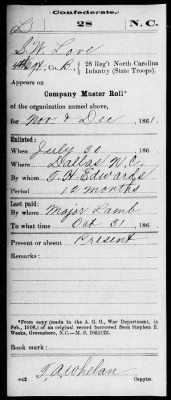 Confederate.
L 28 N.C.
S. W. Love
Co. B. 28 Reg't North Carolina
Infantry (State Troops).
Appears on
Company Muster Roll*
of the organization named above,
for Nov & Dec, 1861.
Enlisted:
When July 30, 186 .
Where Dallas N.C.
By whom T. H. Edwards
Period 12 months
Last paid:
By whom Major Lamb
To what time Oct 31, 186 .
Present or absent Present
Remarks:
*From copy (made in the A. G. O., War Department, in
Feb., 1909,) of an original record borrowed from Stephen B.
Weeks, Greensboro, N. C.—M. S.
Book mark:
T. A. Whelan
Copyist.